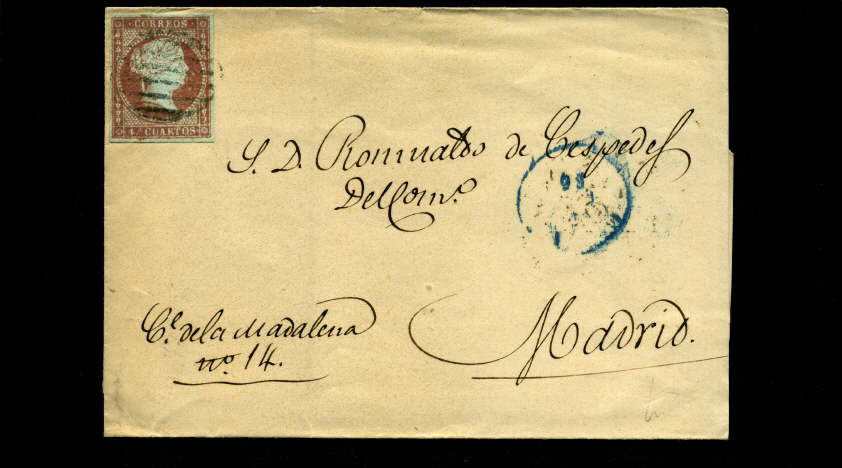 CORREOS
4 CUARTOS
S. D. Romualdo de Cespedes
Del Com.o
C.e de la Madalena
no. 14.
Madrid.